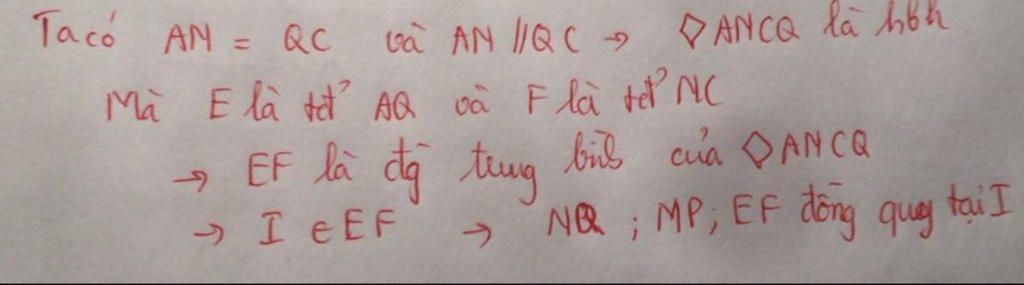 Ta có AN = QC và AN // QC → ◇ANCQ là hbh
Mà E là tđ' AQ và F là tđ' NC
→ EF là đg trung bình của ◇ANCQ
→ I ∈ EF → NQ ; MP ; EF đồng quy tại I